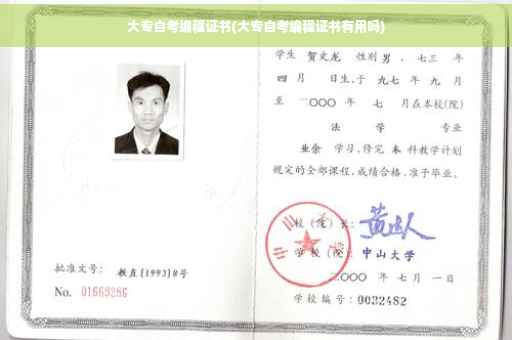 大专自考编程证书(大专自考编程证书有用吗)
学生 贺文龙 性别 男 、七三 年
四 月 日生,于 九七 年 九 月
至 二〇〇〇 年 七 月在本校(院)
法 学 专业
业余 学习,修完 本 科教学计划
规定的全部课程,成绩合格,准予毕业。
校(院)长:
学校(院):中山大学
二〇〇〇 年 七 月 一 日
学校编号:0032482
批准文号: 教直[1993]8号
No. 01669286